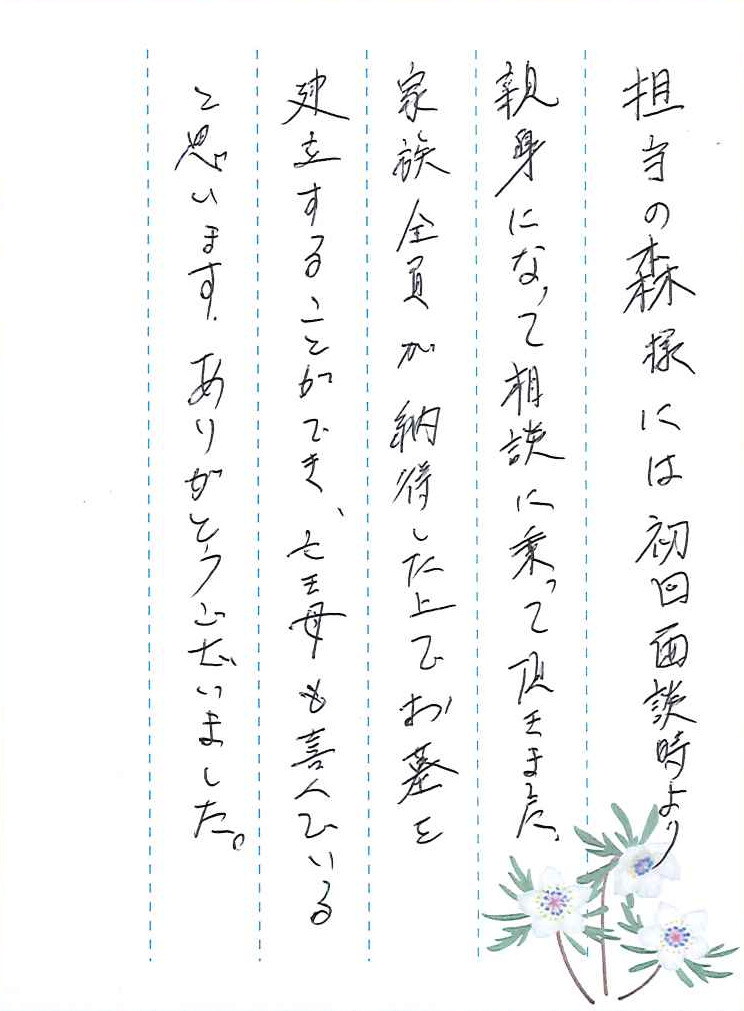 担当の森様には初回面談時より
親身になって相談に乗って頂きました。
家族全員が納得した上でお墓を
建立することができ、亡き母も喜んでいる
と思います。ありがとうございました。